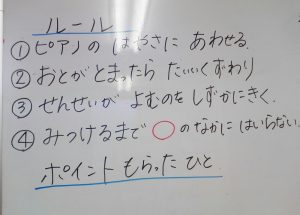 ルール
①ピアノの はやさに あわせる.
②おとがとまったら たいいくずわり
③せんせいが よむのを しずかにきく.
④みつけるまで ○ のなかに はいらない.
ポイント もらった ひと.